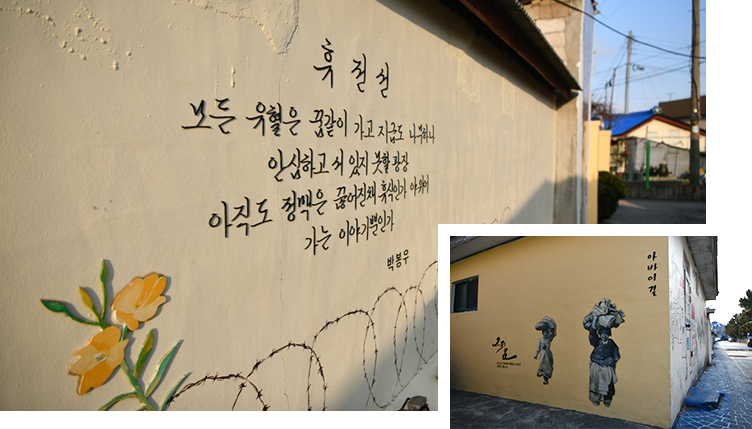 휴전선
모든 유혈은 꿈같이 가고 지금도 나무하나
안심하고 서 있지 못할 광장
아직도 정맥은 끊어진채 휴식인가 야위어
가는 이야기뿐인가
박봉우
아바이길